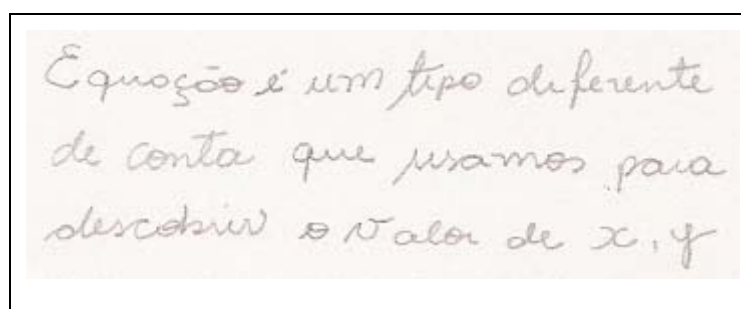 Equação é um tipo diferente
de conta que usamos para
descobrir o valor de x, y